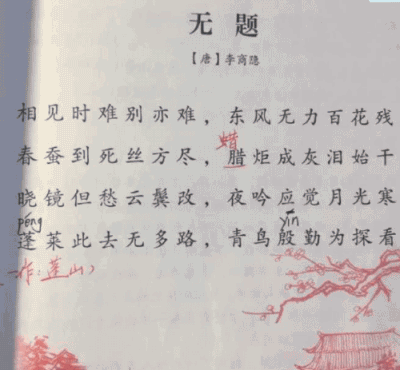 无题
【唐】李商隐
相见时难别亦难，东风无力百花残
蜡
春蚕到死丝方尽，腊炬成灰泪始干
晓镜但愁云鬓改，夜吟应觉月光寒
péng
yīn
蓬莱此去无多路，青鸟殷勤为探看
一作：蓬山